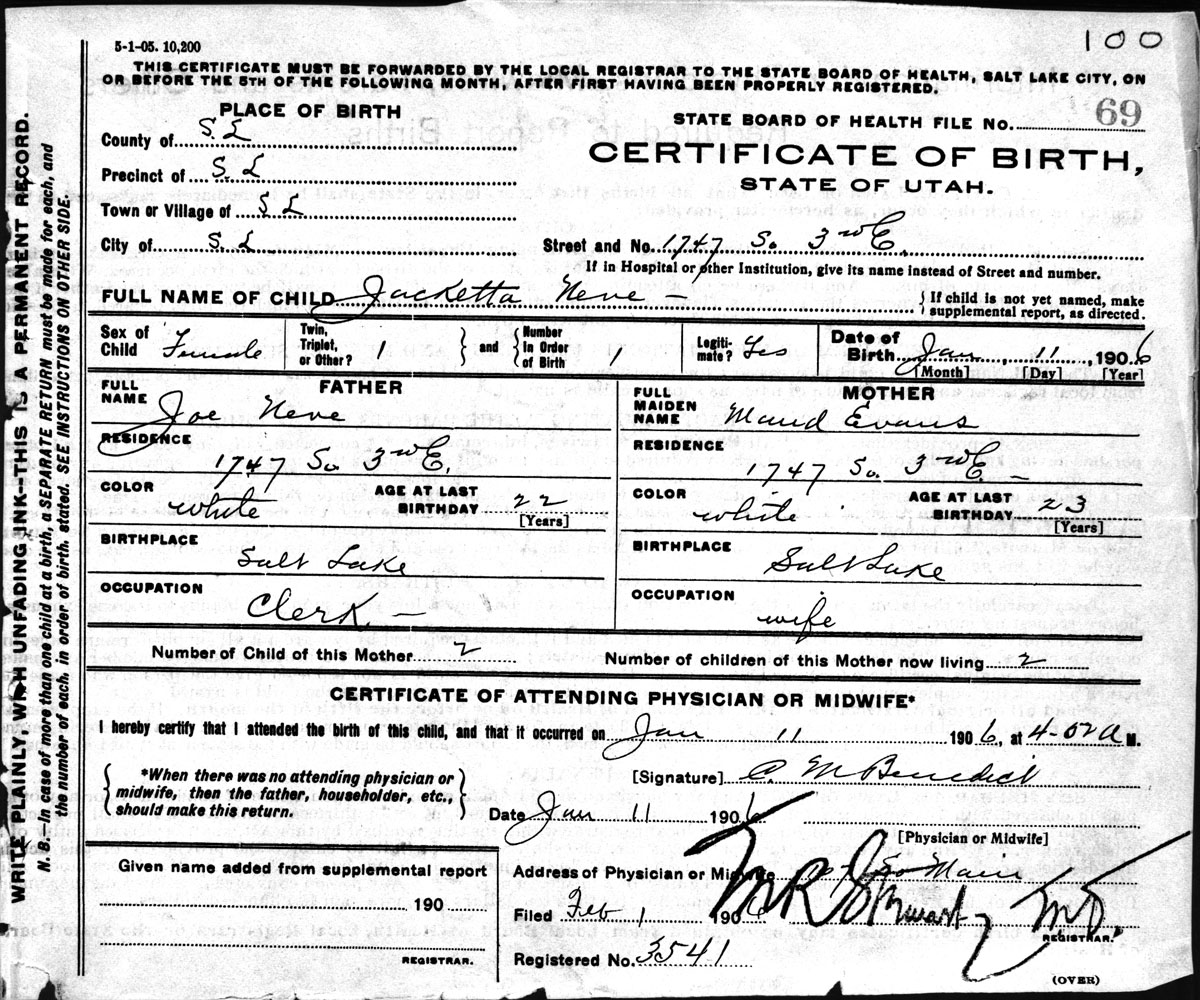 100
5-1-05. 10,200
THIS CERTIFICATE MUST BE FORWARDED BY THE LOCAL REGISTRAR TO THE STATE BOARD OF HEALTH, SALT LAKE CITY, ON
OR BEFORE THE 5TH OF THE FOLLOWING MONTH, AFTER FIRST HAVING BEEN PROPERLY REGISTERED.
PLACE OF BIRTH
County of S. L
Precinct of S. L
Town or Village of S L
City of S. L
STATE BOARD OF HEALTH FILE No. 69
CERTIFICATE OF BIRTH,
STATE OF UTAH.
Street and No. 1747 So. 3rd E.
If in Hospital or other Institution, give its name instead of Street and number.
FULL NAME OF CHILD Jacketta Neve —
{ If child is not yet named, make
supplemental report, as directed.
Sex of Child Female
Twin, Triplet, or Other? 1 } and { Number In Order of Birth 1
Legiti-mate? Yes
Date of Birth Jan, 11, 1906
[Month] [Day] [Year]
FATHER
FULL NAME Joe Neve
RESIDENCE
1747 So. 3rd E.
COLOR white
AGE AT LAST BIRTHDAY 22
[Years]
BIRTHPLACE
Salt Lake
OCCUPATION
Clerk. —
MOTHER
FULL MAIDEN NAME Maud Evans
RESIDENCE
1747 So. 3rd E. —
COLOR white
AGE AT LAST BIRTHDAY 23
[Years]
BIRTHPLACE
Salt Lake
OCCUPATION
wife
Number of Child of this Mother 2
Number of children of this Mother now living 2
CERTIFICATE OF ATTENDING PHYSICIAN OR MIDWIFE*
I hereby certify that I attended the birth of this child, and that it occurred on Jan 11 1906, at 4-02 A M.
{ *When there was no attending physician or
midwife, then the father, householder, etc.,
should make this return. }
[Signature] C. M Benedict
Date Jan 11 1906
[Physician or Midwife]
Given name added from supplemental report
190
REGISTRAR.
Address of Physician or Midwife So Main
Filed Feb 1 1906
M.D.
REGISTRAR.
Registered No. 3541
(OVER)
WRITE PLAINLY, WITH UNFADING INK—THIS IS A PERMANENT RECORD.
N. B.—In case of more than one child at a birth, a SEPARATE RETURN must be made for each, and
the number of each, in order of birth, stated. SEE INSTRUCTIONS ON OTHER SIDE.